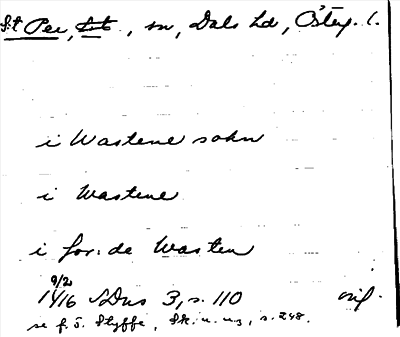 S:t Per, S:t, sn, Dals hd, Östg. l.
i Wastene sokn
i Wastene
i for:de Wasten
9/2
1416 SDns 3, s. 110 orig.
se f. ö. Styffe, Sk. u. u3, s. 248.